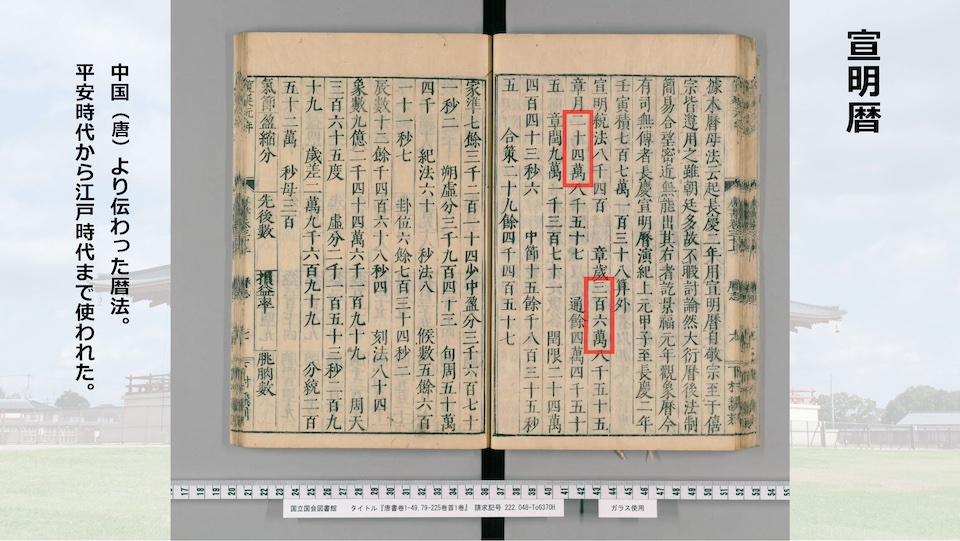 宣明暦
據本暦母法云起長慶二年用宣明暦自敬宗至于僖
宗皆遵用之雖朝廷多故不暇討論然大衍暦後法制
簡易合望密近無能出其右者訖景福元年觀象暦今
有司無傳者長慶宣明暦演紀上元甲子至長慶二年
壬寅積七百七萬一百三十八算外
宣明統法八千四百 章歲三百六萬八千五十五
章月二十四萬八千五十七 通餘四萬四千五十
五 章閏九萬一千三百七十一 閏限二十四萬
四百四十三秒六 中節十五餘千八百三十五秒
五 合策二十九餘四千四百五十七
家準七餘三千二百一十四少中盈分三千六百七十
一秒二 朔虛分三千九百四十三 旬周五十萬
四千 紀法六十 秒法八 候數五餘六百
一十一秒七 卦位六餘七百三十四秒二
辰數十二餘千四百六十八秒四 刻法八十四
象數九億二千四十四萬六千一百九十九 周天
三百六十五度 虛分二千一百五十三秒二百九
十九 歲差二萬九千六百九十九 分統二百
五十二萬 秒母三百
氣節盈縮分 先後數 損益率 朓朒數
中国(唐)より伝わった暦法。
平安時代から江戸時代まで使われた。
17 18 19 20 21 22 23 24 25 26 27 28 29 30 31 32 33 34 35 36 37 38 39 40 41 42 43 44 45 46 47 48 49 50 51 52 53 54 55
国立国会図書館 タイトル『唐書巻1-49,79-225巻首1巻』 請求記号 222.048-To6370H
ガラス使用